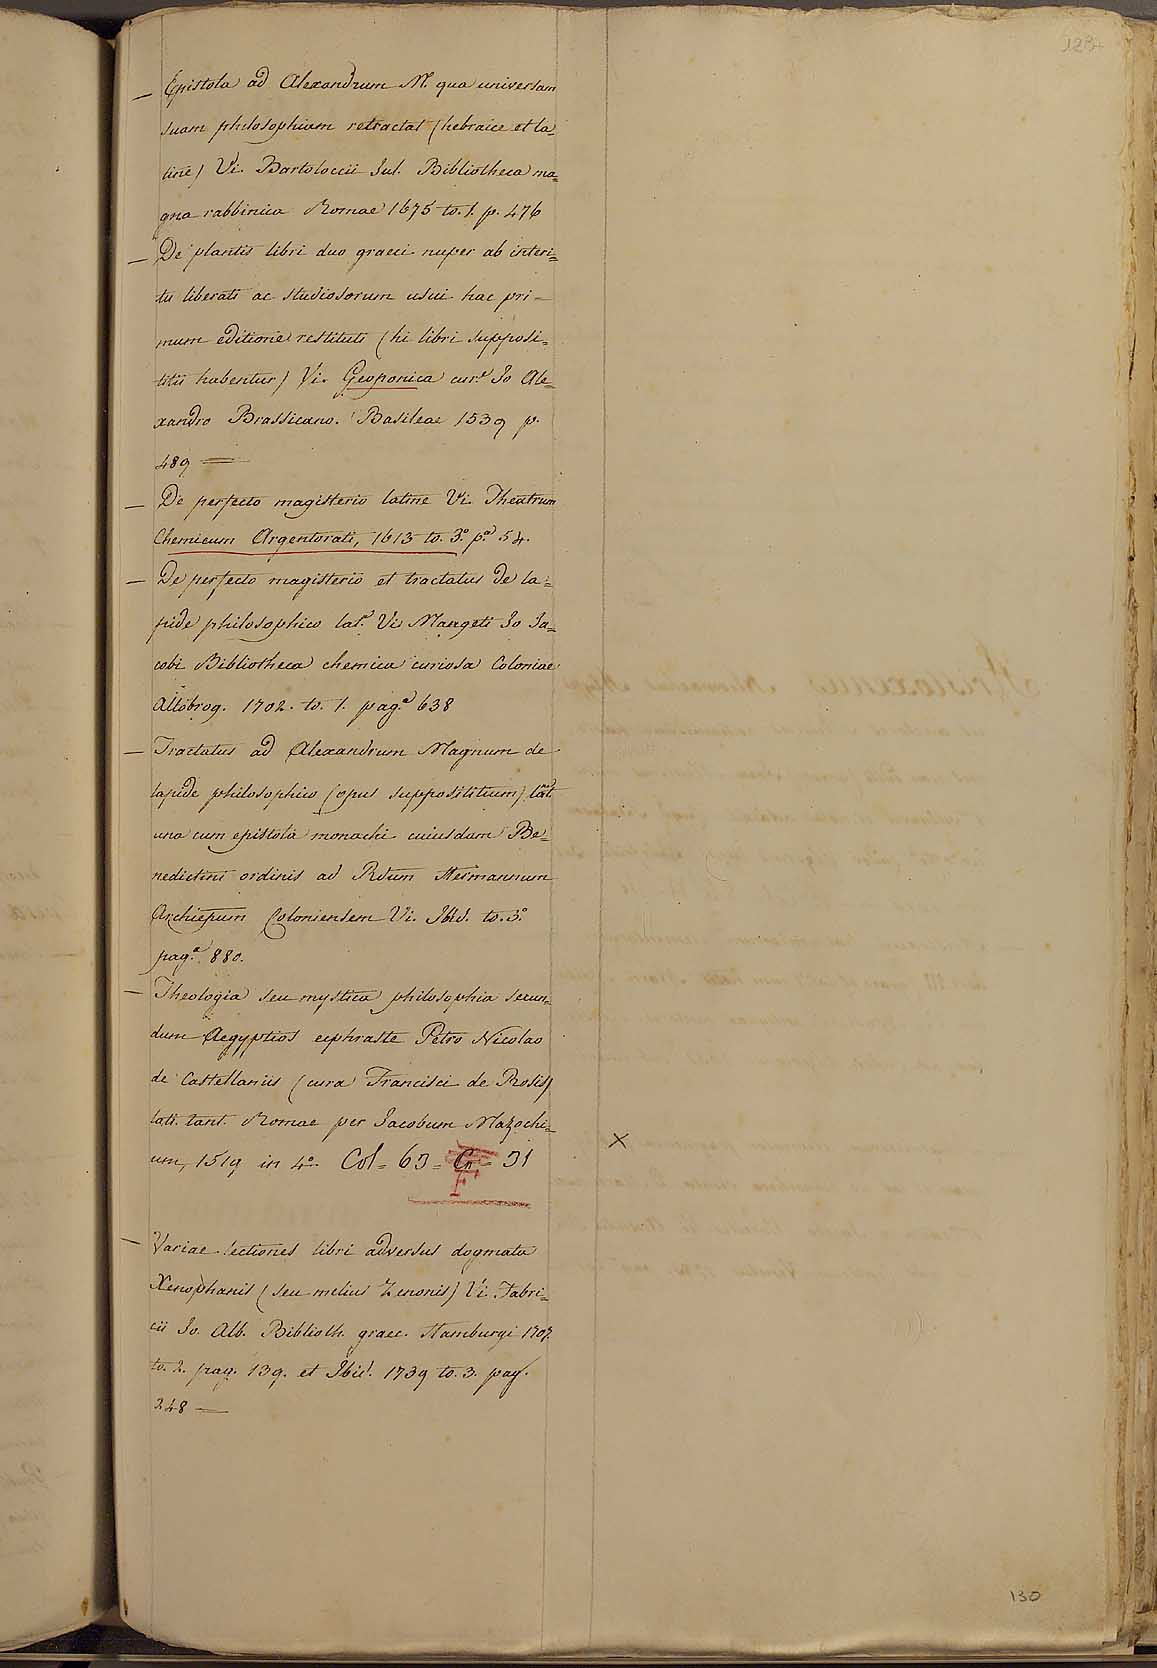 128
— Epistola ad Alexandrum M. qua universam
suam philosophiam retractat (hebraice et la=
tine) Vi. Bartoloccii Jul. Bibliotheca ma=
gna rabbinica Romae 1675 to. 1. p. 476
— De plantis libri duo graeci nuper ab interi=
tu liberati ac studiosorum usui hac pri=
mum editione restituti (hi libri supposi=
titii habentur) Vi. Geoponica cur.e Jo Ale=
xandro Brassicano. Basileae 1539 p.
489 —
— De perfecto magisterio latine Vi. Theatrum
Chemicum Argentorati, 1613 to. 3.o p.a 54.
— De perfecto magisterio et tractatus de la=
pide philosophico lat.e Vi. Mangeti Jo Ja=
cobi Bibliotheca chemica curiosa Coloniae
Allobrog. 1702. to. 1. pag.a 638
— Tractatus ad Alexandrum Magnum de
lapide philosophico (opus supposititium) lat.
una cum epistola monachi cuiusdam Be=
nedictini ordinis ad Rdum Hermannum
Archiepum Coloniensem Vi. Ibid. to. 3.o
pag.a 880.
— Theologia seu mystica philosophia secun=
dum Aegyptios exphraste Petro Nicolao
de Castellaniis (cura Francisci de Rosis)
lati. tant. Romae per Jacobum Mazochi=
um, 1519 in 4.o Col= 63= Cn= 31
F
×
— Variae lectiones libri adversus dogmata
Xenophanis (seu melius Zenonis) Vi. Fabri=
cii Jo. Alb. Biblioth. graec. Hamburgi 1707
to. 2. pag. 139. et Ibid. 1739 to. 3. pag.
248 —
130